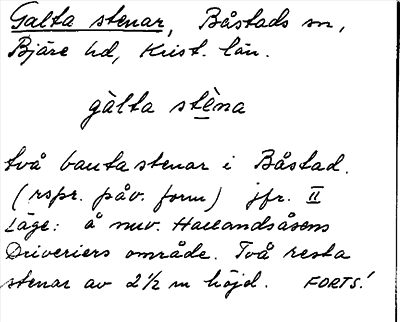 Galta stenar, Båstads sn,
Bjäre hd, Krist. län.
gàlta stèna
två bautastenar i Båstad.
(rspr. påv. form) jfr. II
Läge: å nuv. Hallandsåsens
Driveriers område. Två resta
stenar av 2 1/2 m höjd. FORTS!